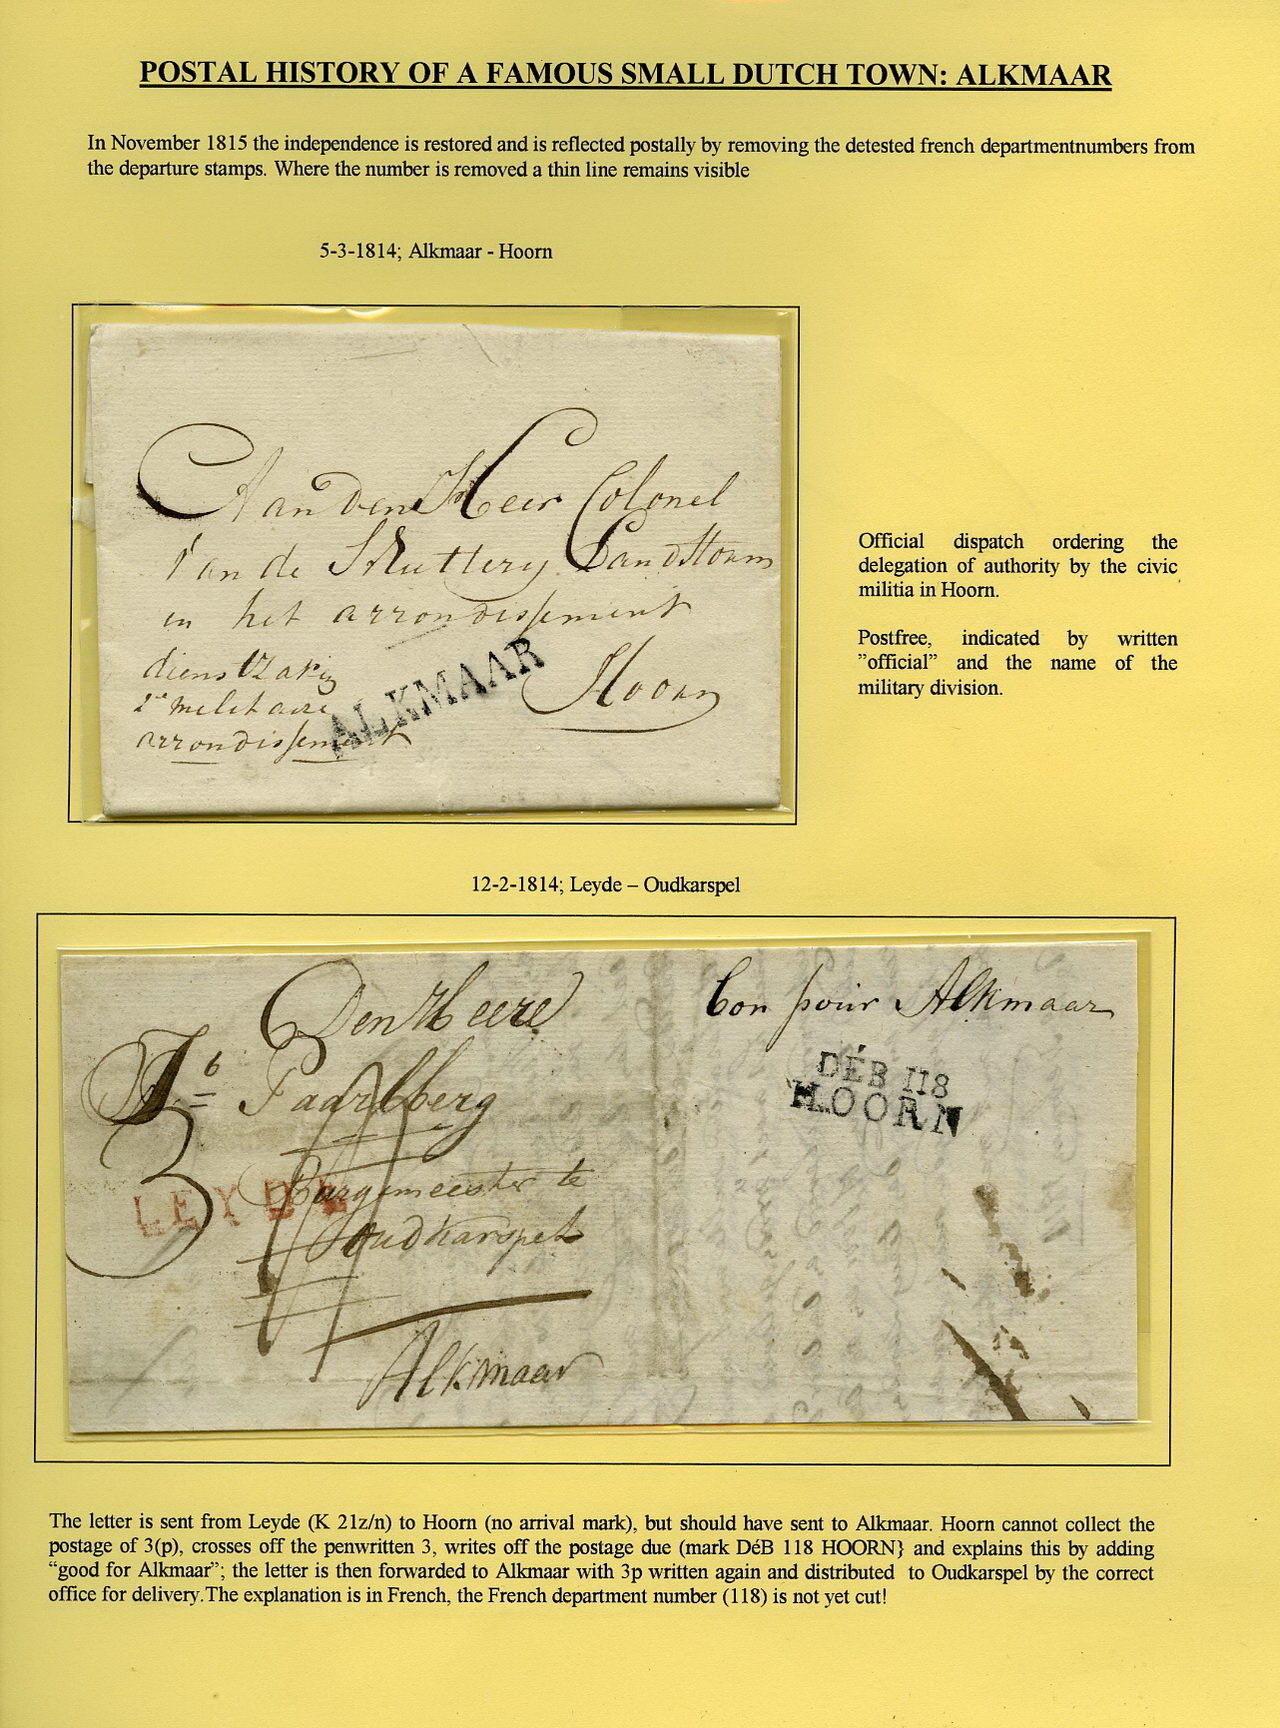 POSTAL HISTORY OF A FAMOUS SMALL DUTCH TOWN: ALKMAAR
In November 1815 the independence is restored and is reflected postally by removing the detested french departmentnumbers from
the departure stamps. Where the number is removed a thin line remains visible
5-3-1814; Alkmaar - Hoorn
Aan den Heer Colonel
Van de Skuttery Landstorm
in het arrondissement
Hoorn
dienstzaken
2e militaire
arrondissement
ALKMAAR
Official dispatch ordering the
delegation of authority by the civic
militia in Hoorn.
Postfree, indicated by written
”official” and the name of the
military division.
12-2-1814; Leyde – Oudkarspel
Den Heere
Jb Paarlberg
Burgemeester te
Oudkarspel
Alkmaar
3
LEYDE
bon pour Alkmaar
DÉB 118
HOORN
The letter is sent from Leyde (K 21z/n) to Hoorn (no arrival mark), but should have sent to Alkmaar. Hoorn cannot collect the
postage of 3(p), crosses off the penwritten 3, writes off the postage due (mark DéB 118 HOORN} and explains this by adding
“good for Alkmaar”; the letter is then forwarded to Alkmaar with 3p written again and distributed to Oudkarspel by the correct
office for delivery.The explanation is in French, the French department number (118) is not yet cut!